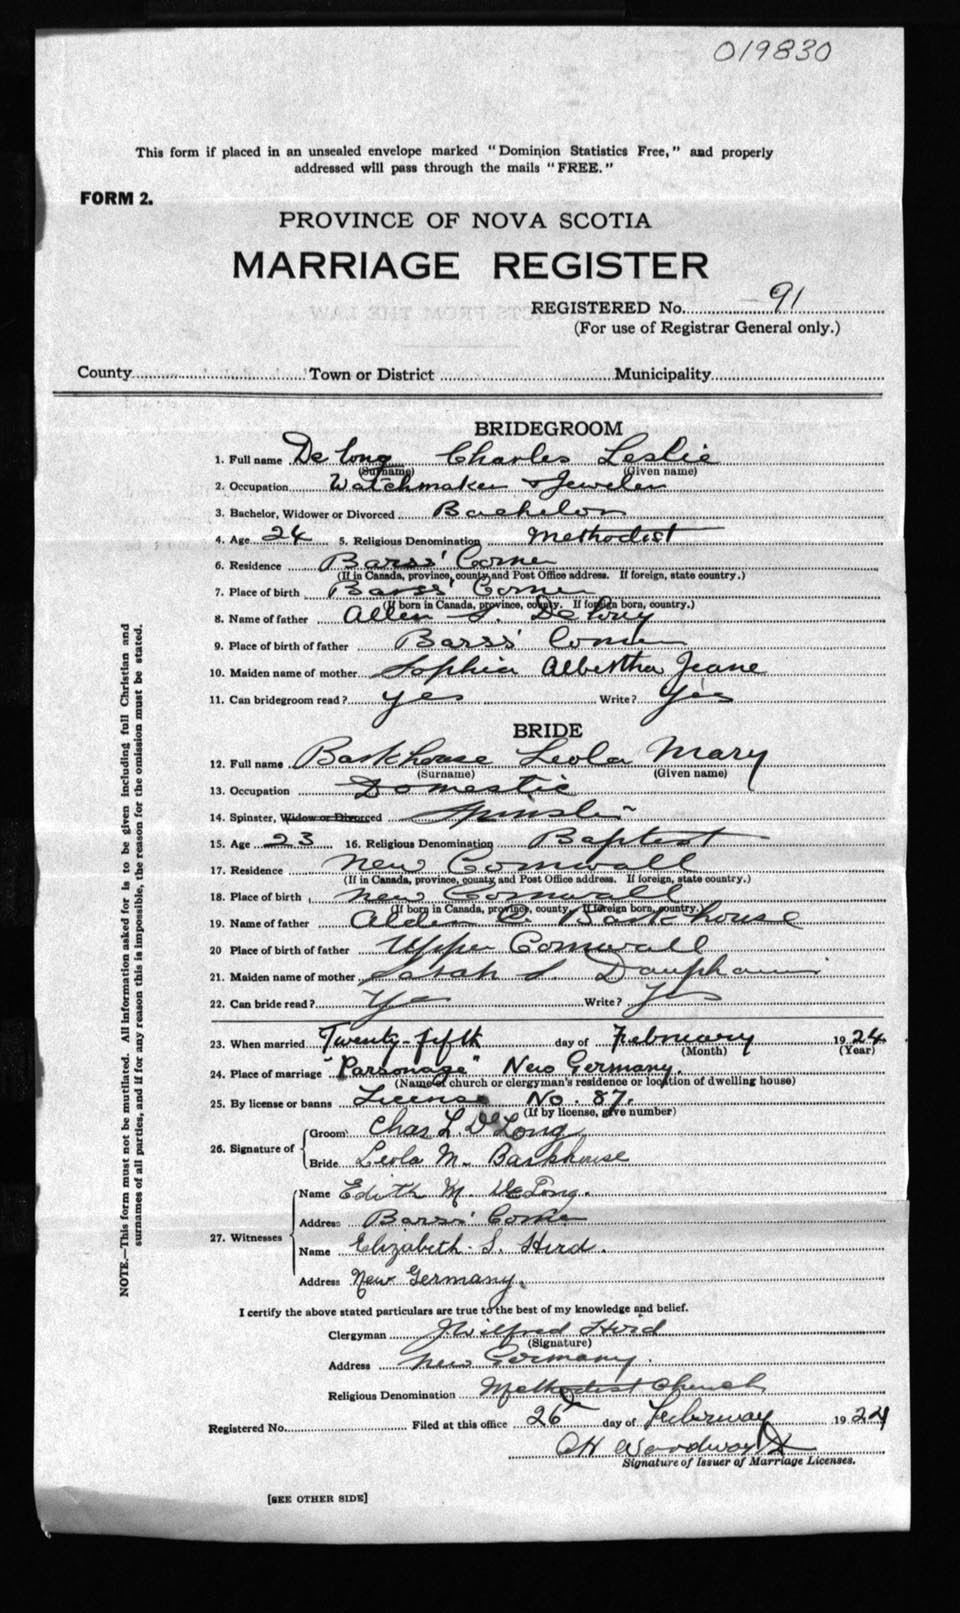 019830
This form if placed in an unsealed envelope marked "Dominion Statistics Free," and properly
addressed will pass through the mails "FREE."
FORM 2.
PROVINCE OF NOVA SCOTIA
MARRIAGE REGISTER
REGISTERED No. 91
(For use of Registrar General only.)
County Town or District Municipality
BRIDEGROOM
1. Full name De Long Charles Leslie
(Surname) (Given name)
2. Occupation Watchmaker & Jeweler
3. Bachelor, Widower or Divorced Bachelor
4. Age 24 5. Religious Denomination Methodist
6. Residence Barss' Corner
(If in Canada, province, county and Post Office address. If foreign, state country.)
7. Place of birth Barss' Corner
(If born in Canada, province, county. If foreign born, country.)
8. Name of father Allen S. De Long
9. Place of birth of father Barss' Corner
10. Maiden name of mother Sophia Albertha Jeane
11. Can bridegroom read? yes Write? yes
BRIDE
12. Full name Barkhouse Leola Mary
(Surname) (Given name)
13. Occupation Domestic
14. Spinster, Widow or Divorced Spinster
15. Age 23 16. Religious Denomination Baptist
17. Residence New Cornwall
(If in Canada, province, county and Post Office address. If foreign, state country.)
18. Place of birth New Cornwall
(If born in Canada, province, county. If foreign born, country.)
19. Name of father Alden C. Barkhouse
20 Place of birth of father Upper Cornwall
21. Maiden name of mother Sarah S.
22. Can bride read? Yes Write? Yes
23. When married Twenty-fifth day of February 1924
(Month) (Year)
24. Place of marriage "Parsonage" New Germany.
(Name of church or clergyman's residence or location of dwelling house)
25. By license or banns License No. 87.
(If by license, give number)
26. Signature of Groom Chas L. DeLong
Bride Leola M. Barkhouse
27. Witnesses
Name Edith M. DeLong.
Address Barss' Corner
Name Elizabeth S. Hird.
Address New Germany.
I certify the above stated particulars are true to the best of my knowledge and belief.
Clergyman J. Wilfred Hird
(Signature)
Address New Germany.
Religious Denomination Methodist Church
Registered No. Filed at this office 26 day of February 1924
Woodworth
Signature of Issuer of Marriage Licenses.
[SEE OTHER SIDE]
NOTE.—This form must not be mutilated. All information asked for is to be given including full Christian and
surnames of all parties, and if for any reason this is impossible, the reason for the omission must be stated.